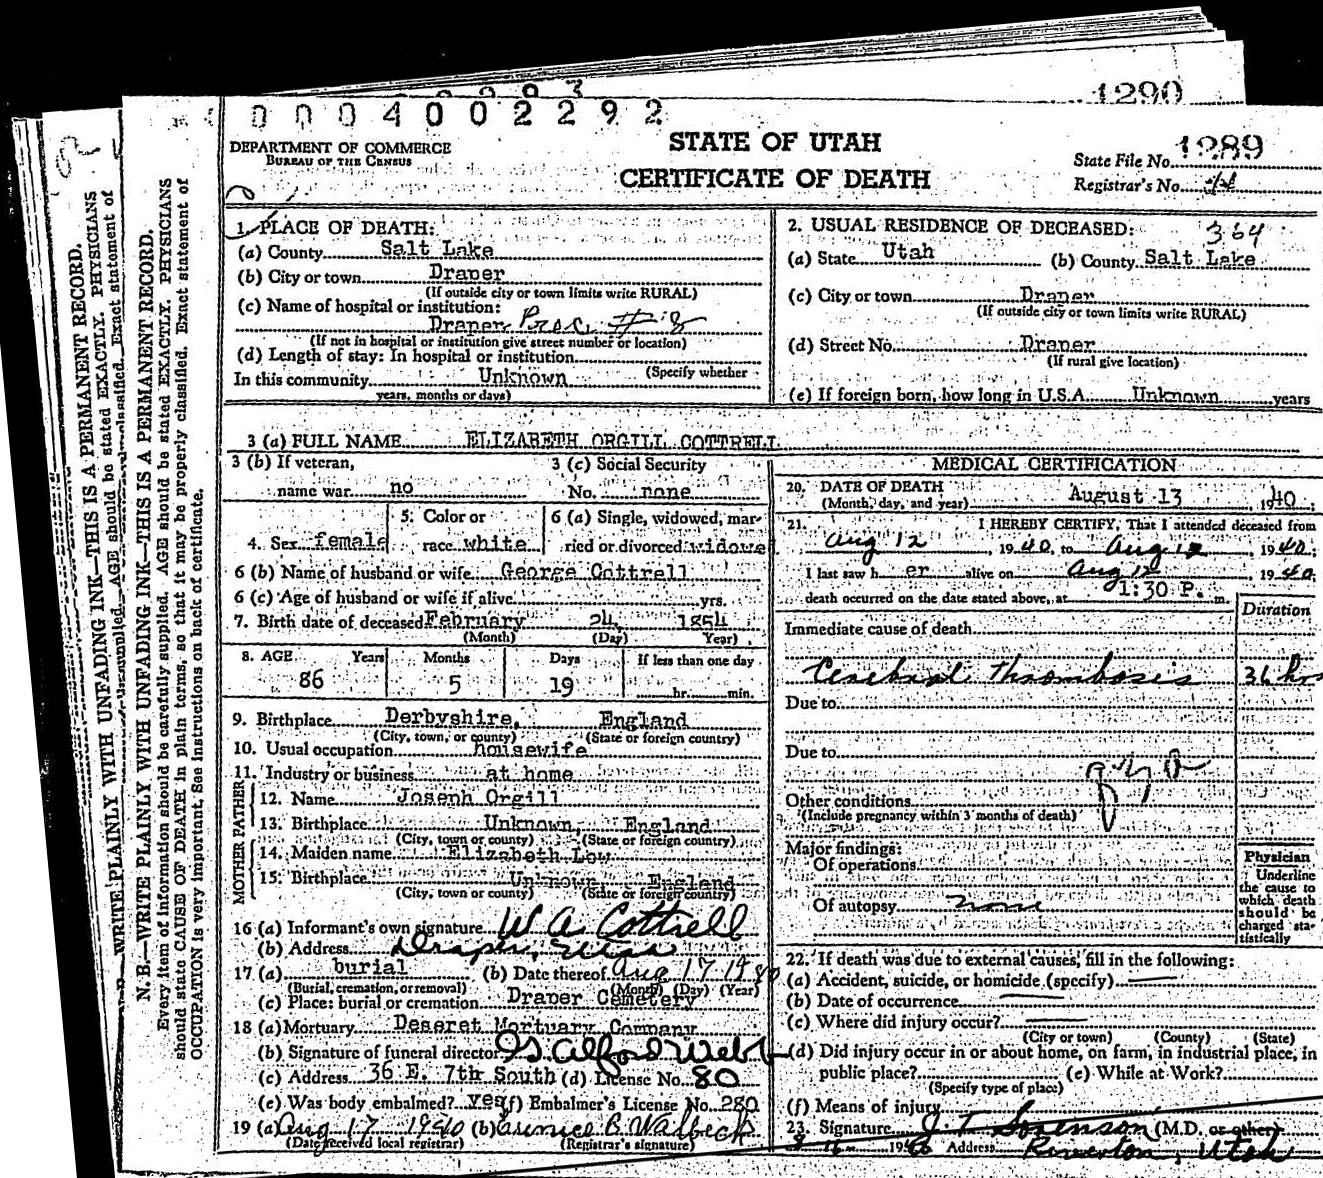 1290
0 0 0 4 0 0 2 2 9 2
DEPARTMENT OF COMMERCE
BUREAU OF THE CENSUS
STATE OF UTAH
CERTIFICATE OF DEATH
State File No. 1289
Registrar's No.
1. PLACE OF DEATH:
(a) County Salt Lake
(b) City or town Draper
(If outside city or town limits write RURAL)
(c) Name of hospital or institution:
Draper Prec. #8
(If not in hospital or institution give street number or location)
(d) Length of stay: In hospital or institution
(Specify whether
In this community Unknown
years, months or days)
2. USUAL RESIDENCE OF DECEASED: 364
(a) State Utah (b) County Salt Lake
(c) City or town Draper
(If outside city or town limits write RURAL)
(d) Street No. Draper
(If rural give location)
(e) If foreign born, how long in U.S.A. Unknown years
3 (a) FULL NAME ELIZABETH ORGILL COTTRELL
3 (b) If veteran, name war no
3 (c) Social Security No. none
4. Sex female
5. Color or race white
6 (a) Single, widowed, married or divorced widowe
6 (b) Name of husband or wife George Cottrell
6 (c) Age of husband or wife if alive yrs.
7. Birth date of deceased February 24 1854
(Month) (Day) Year)
8. AGE Years Months Days If less than one day
86 5 19 hr. min.
9. Birthplace Derbyshire, England
(City, town, or county) (State or foreign country)
10. Usual occupation housewife
11. Industry or business at home
FATHER
12. Name Joseph Orgill
13. Birthplace Unknown, England
(City, town or county) (State or foreign country)
MOTHER
14. Maiden name Elizabeth Low
15. Birthplace Unknown England
(City, town or county) (State or foreign country)
16 (a) Informant's own signature W A Cottrell
(b) Address Draper, Utah
17 (a) burial (b) Date thereof Aug 17 1940
(Burial, cremation, or removal) (Month) (Day) (Year)
(c) Place: burial or cremation Draper Cemetery
18 (a) Mortuary Deseret Mortuary Company
(b) Signature of funeral director Alford Webb
(c) Address 36 E. 7th South (d) License No. 80
(e) Was body embalmed? yes (f) Embalmer's License No. 280
19 (a) Aug 17 1940 (b) Eunice B. Walbeck
(Date received local registrar) (Registrar's signature)
MEDICAL CERTIFICATION
20. DATE OF DEATH
(Month, day, and year) August 13, 1940.
21. I HEREBY CERTIFY, That I attended deceased from
Aug 12, 1940, to Aug 12, 1940;
I last saw h er alive on Aug 12, 1940
death occurred on the date stated above, at 1:30 P. m.
Duration
Immediate cause of death
Cerebral Thrombosis 36 hrs
Due to
Due to
Other conditions
(Include pregnancy within 3 months of death)
Major findings:
Of operations
Of autopsy none
Physician
Underline
the cause to
which death
should be
charged sta-
tistically
22. If death was due to external causes, fill in the following:
(a) Accident, suicide, or homicide (specify)
(b) Date of occurrence
(c) Where did injury occur?
(City or town) (County) (State)
(d) Did injury occur in or about home, on farm, in industrial place, in
public place? (e) While at Work?
(Specify type of place)
(f) Means of injury
23. Signature J T Sorenson (M.D. or other)
8 16 1940 Address Riverton, Utah
N. B.—WRITE PLAINLY WITH UNFADING INK—THIS IS A PERMANENT RECORD.
Every item of information should be carefully supplied. AGE should be stated EXACTLY. PHYSICIANS
should state CAUSE OF DEATH in plain terms, so that it may be properly classified. Exact statement of
OCCUPATION is very important. See instructions on back of certificate.
WRITE PLAINLY WITH UNFADING INK—THIS IS A PERMANENT RECORD.
AGE should be stated EXACTLY. PHYSICIANS
classified. Exact statement of